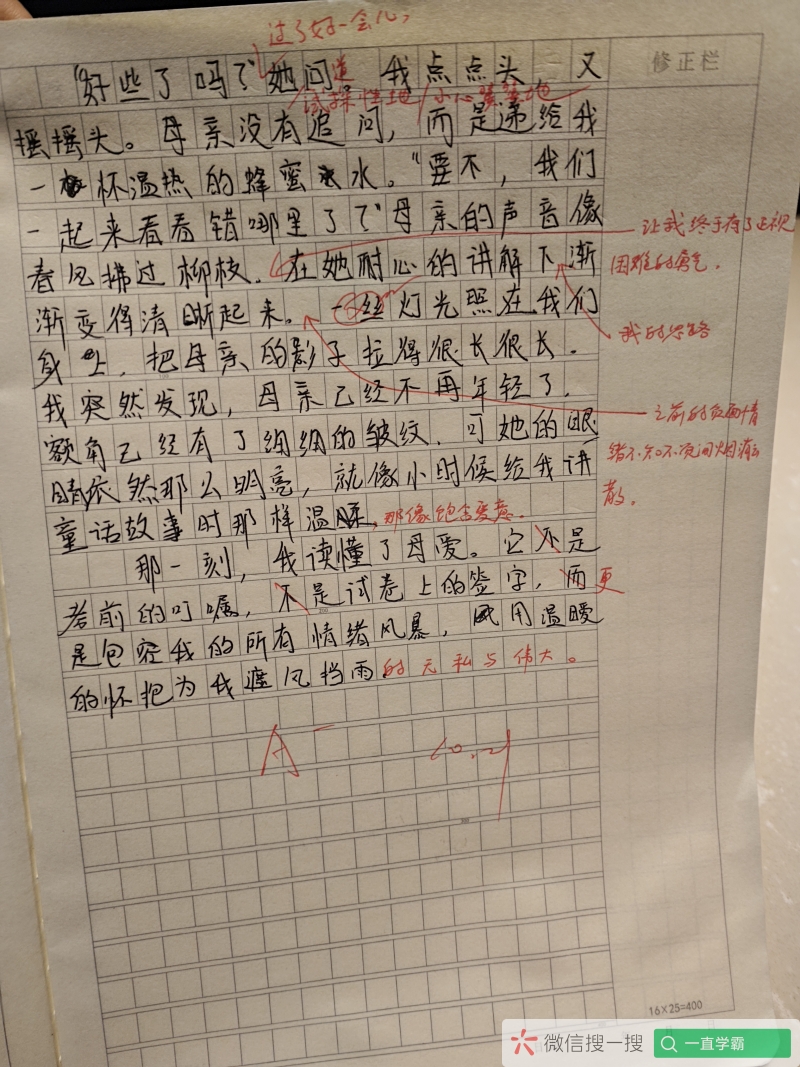 过了好一会儿,
"好些了吗?"她问道 我点点头 又
修正栏
试探性地/小心翼翼地
摇摇头。母亲没有追问,而是递给我
一杯温热的蜂蜜水。"要不,我们
一起来看看错哪里了?"母亲的声音像
让我终于有了正视
春风拂过柳枝.在她耐心的讲解下渐
困难的勇气.
渐变得清晰起来。一丝灯光照在我们
我的思路
身上,把母亲的影子拉得很长很长.
我突然发现,母亲已经不再年轻了.
之前的负面情
额角已经有了细细的皱纹.可她的眼
绪不知不觉间烟消云
睛依然那么明亮,就像小时候给我讲
散。
童话故事时那样温暖,那像饱含爱意.
那一刻,我读懂了母爱。它不是
考前的叮嘱,不是试卷上的签字,而更
是包容我的所有情绪风暴,风用温暖
的怀抱为我遮风挡雨的无私与伟大。
A-
10.21
16×25=400
微信搜一搜
一直学霸